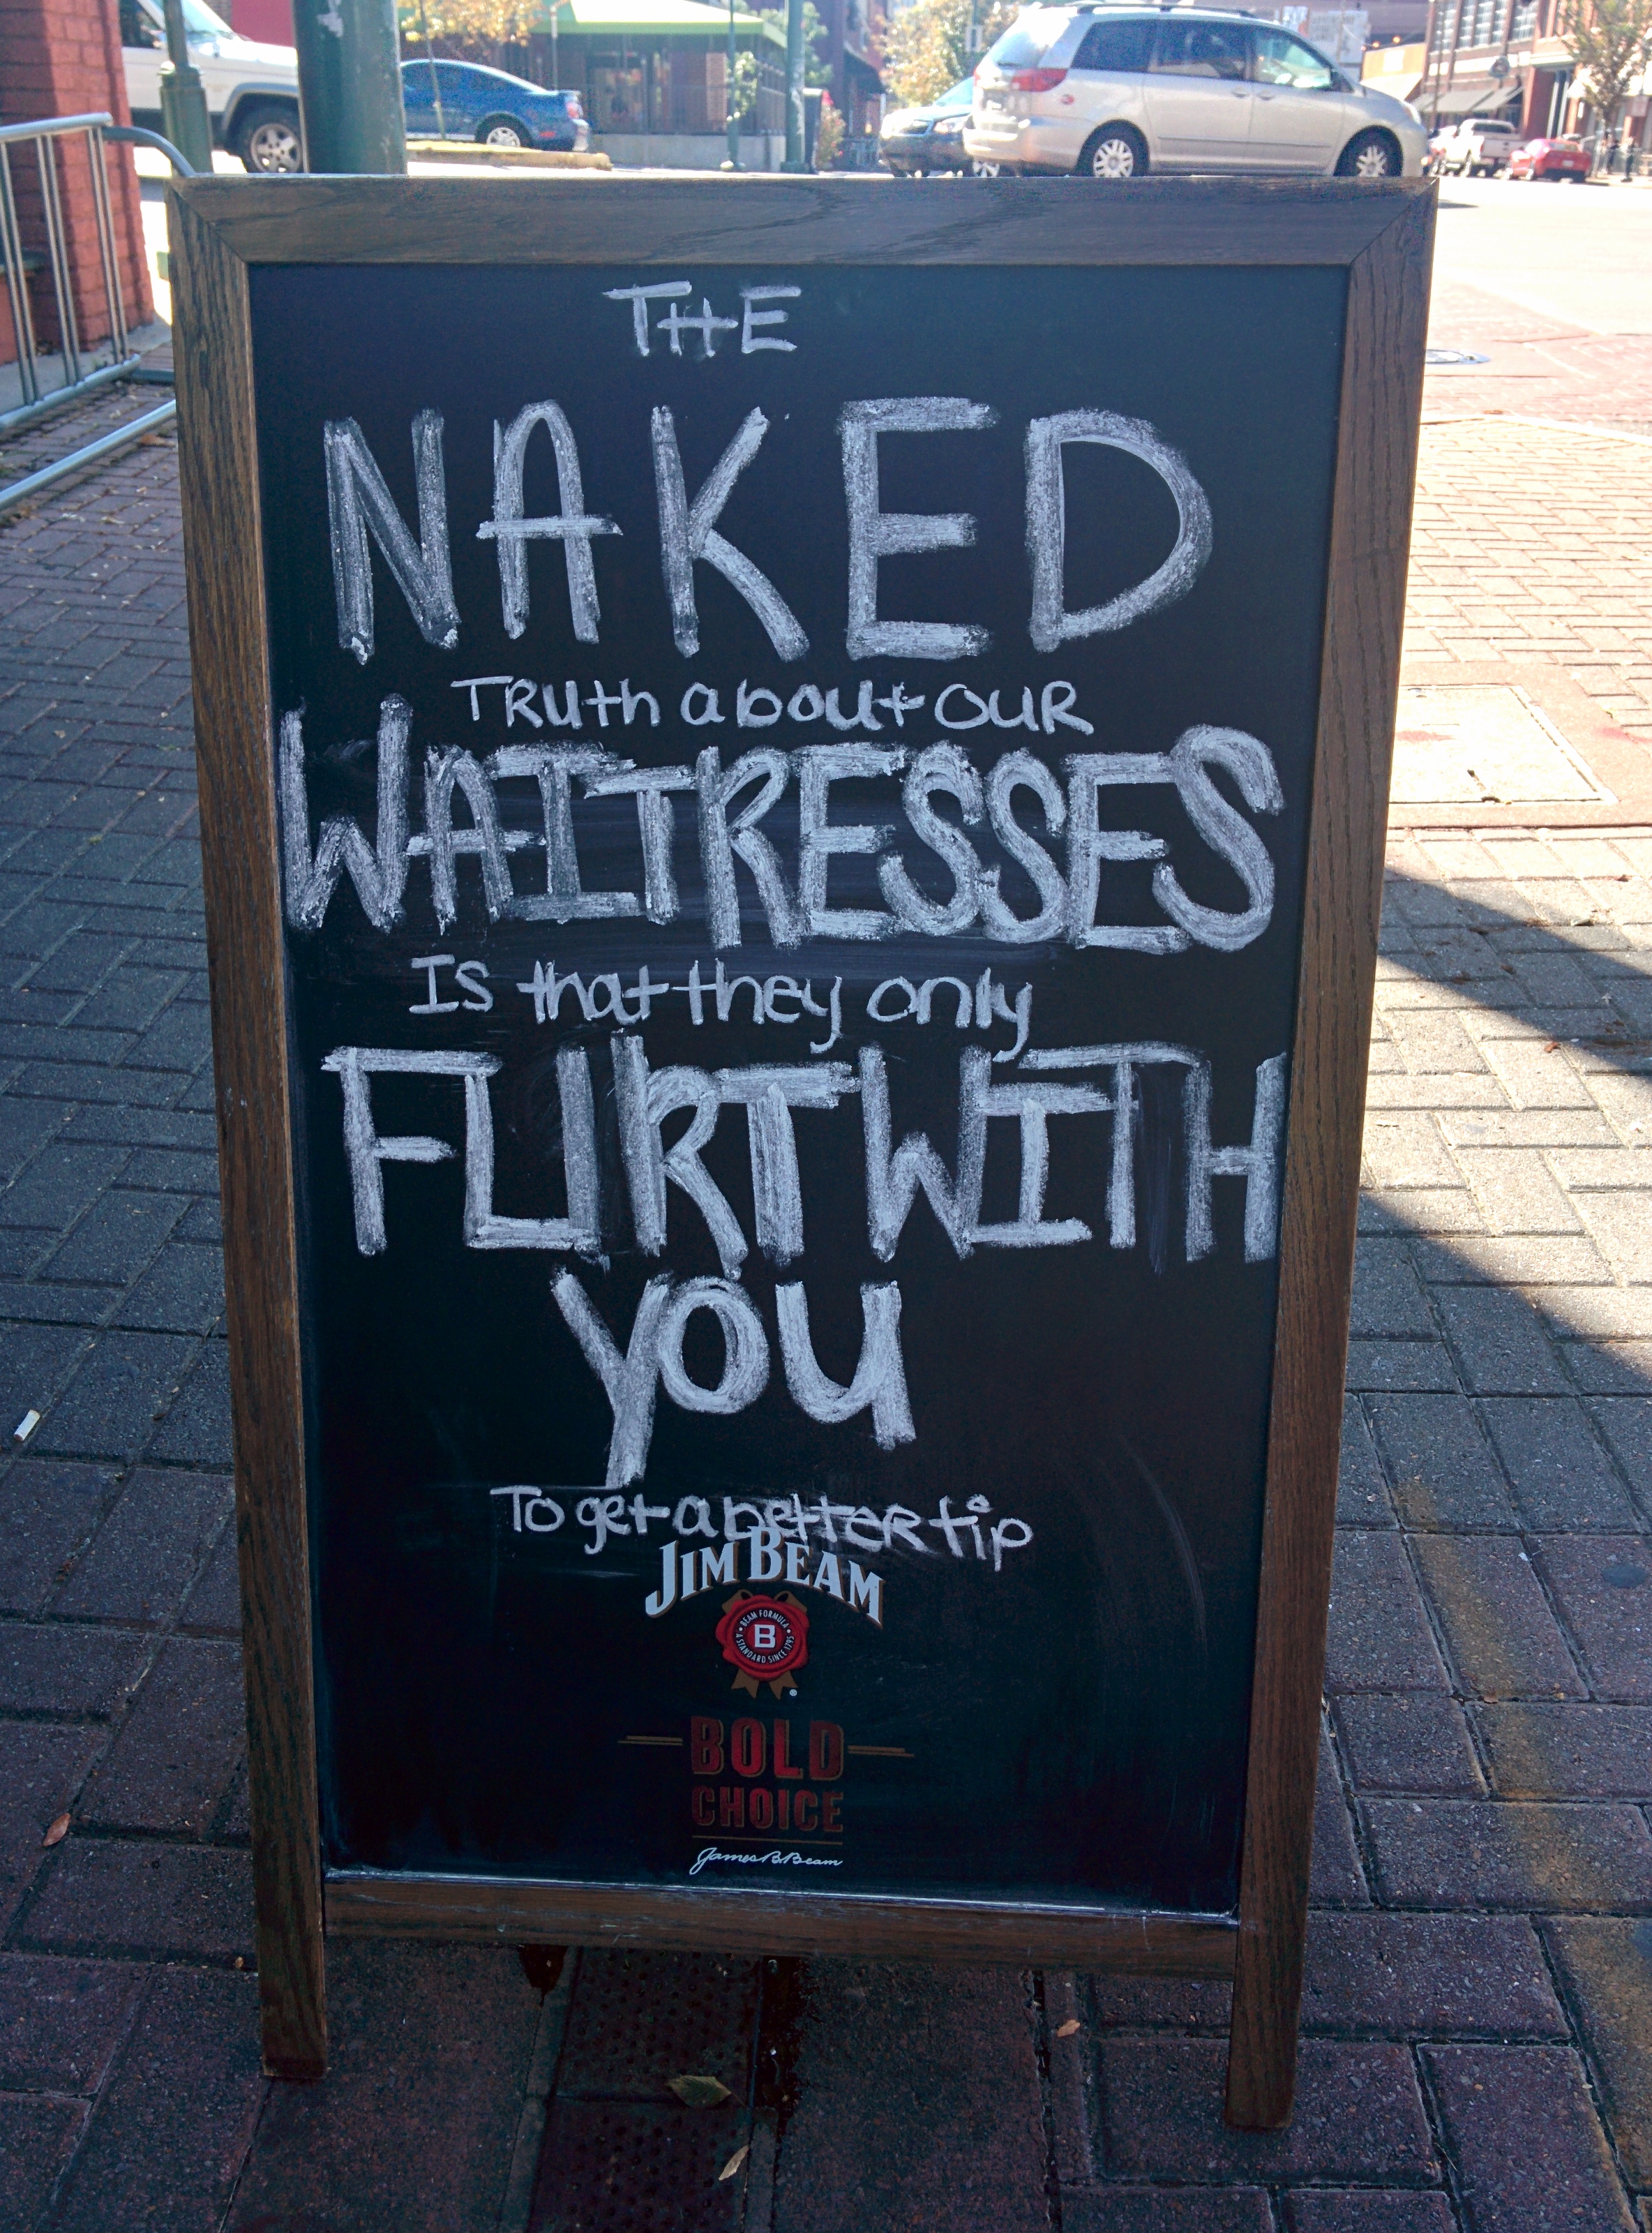 THE
NAKED
TRuth about OUR
WAITRESSES
Is that they only
FLIRT WITH
YOU
To get a better tip
JIM BEAM
BEAM FORMULA
B
A STANDARD SINCE 1795
®
BOLD
CHOICE
James B. Beam